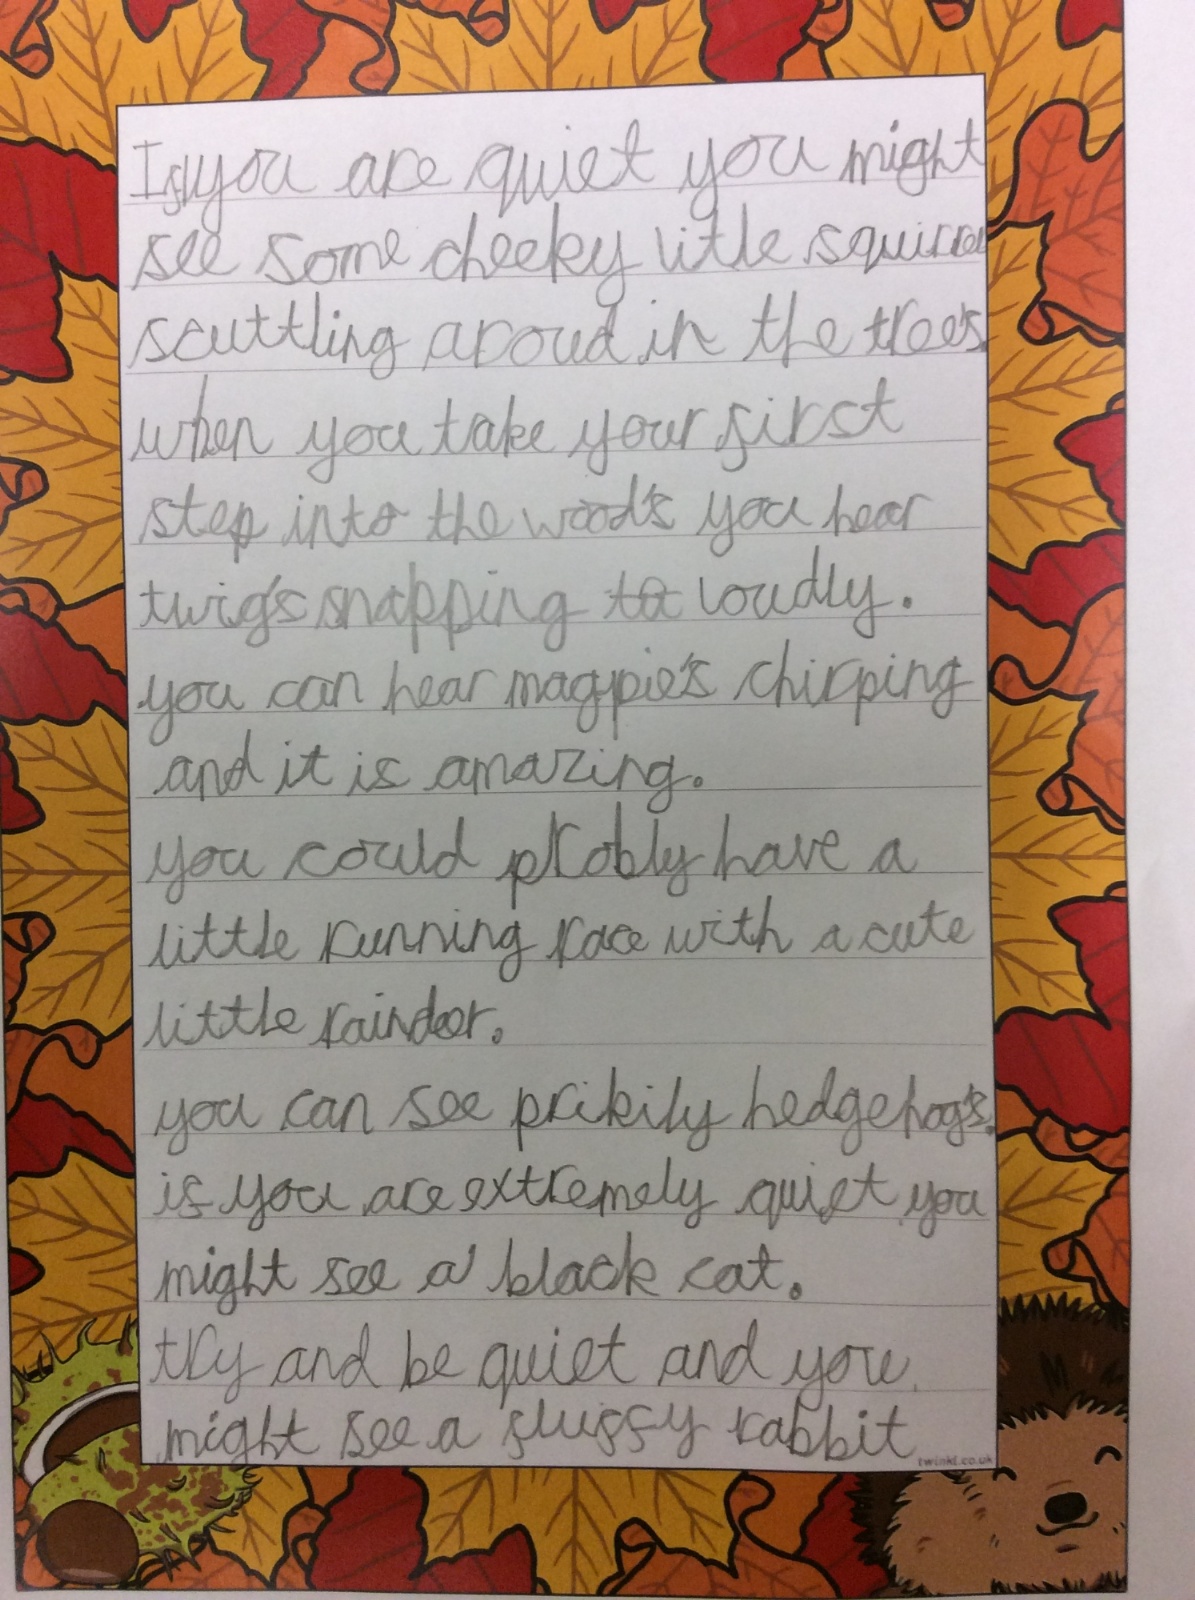 If you are quiet you might
see some cheeky little squirrel
scuttling aroud in the tree's
when you take your first
step into the wood's you hear
twig's snapping to loudly.
you can hear magpie's chirping
and it is amazing.
you could probly have a
little running race with a cute
little raindeer.
you can see prikily hedgehog's.
if you are extremely quiet you
might see a black cat.
try and be quiet and you
might see a fluffy rabbit
twinkl.co.uk